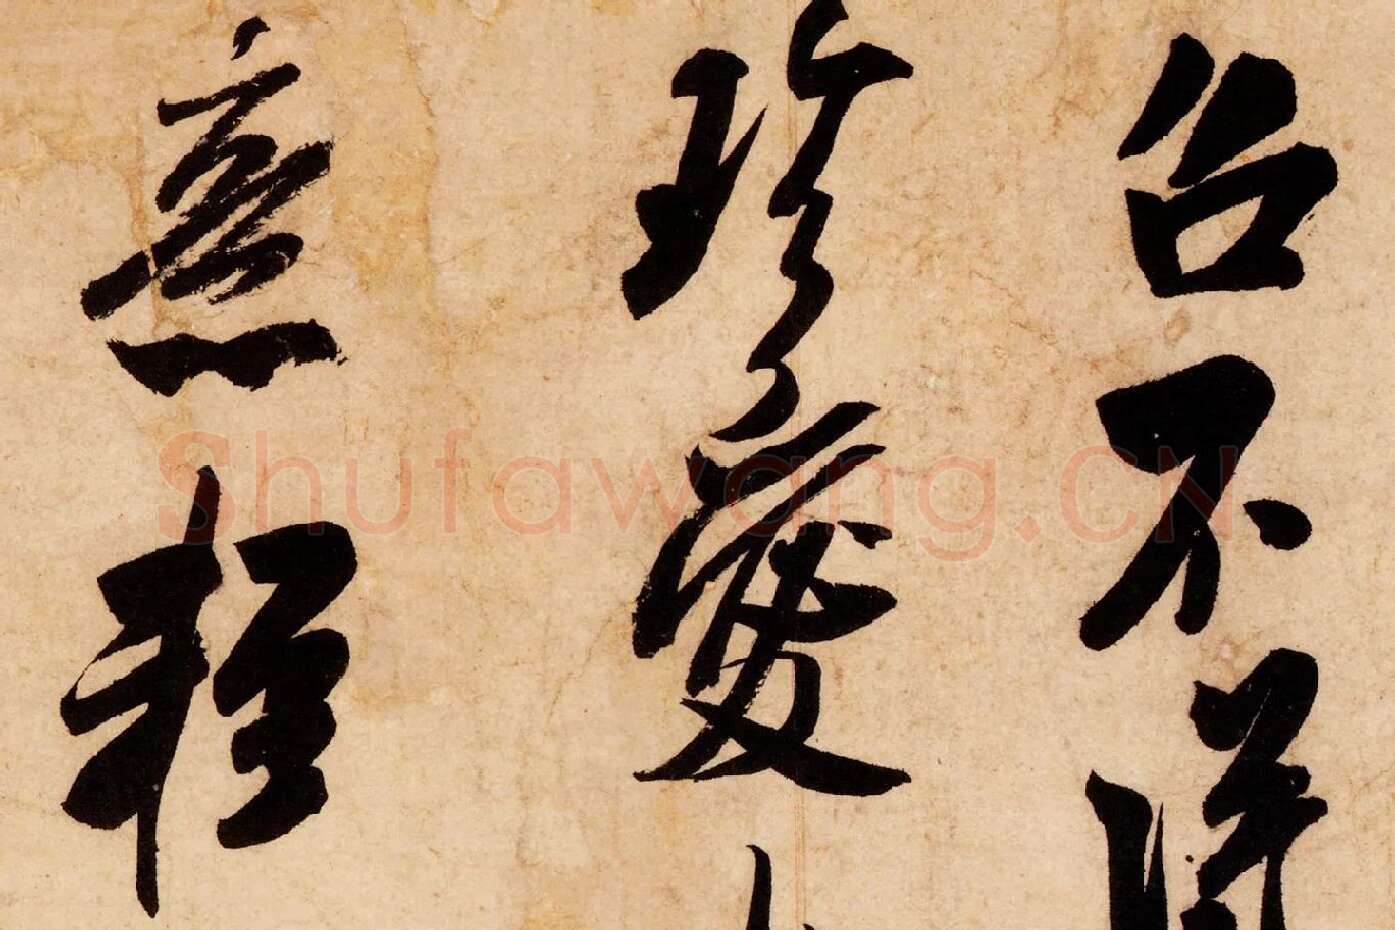 台不
珍愛
意輕
Shufawang.CN